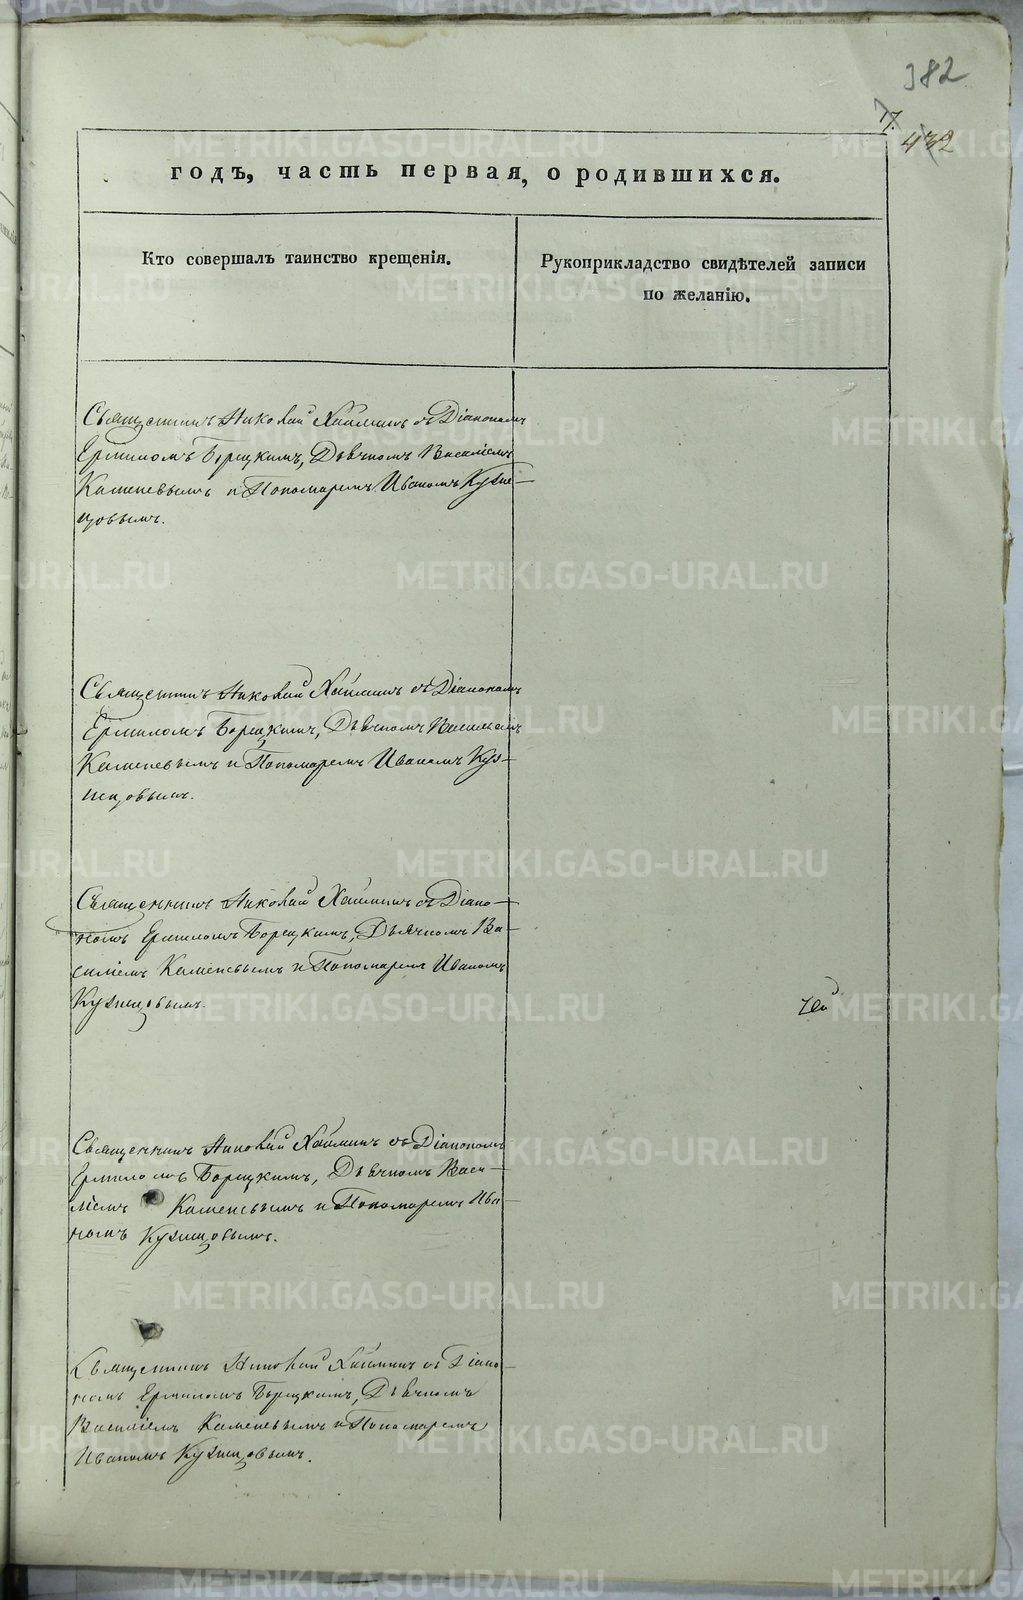 382
432
годъ, часть первая, о родившихся.
Кто совершалъ таинство крещенія.
Рукоприкладство свидѣтелей записи
по желанію.
Священникъ Николай Хайминъ съ Діакономъ
Ермиломъ Борецкимъ, Дьячкомъ Василіемъ
Каменевымъ и Пономаремъ Иваномъ Кузне-
цовымъ.
Священникъ Николай Хайминъ съ Діакономъ
Ермиломъ Борецкимъ, Дьячкомъ Василіемъ
Каменевымъ и Пономаремъ Иваномъ Куз-
нецовымъ.
Священникъ Николай Хайминъ съ Діако-
номъ Ермиломъ Борецкимъ, Дьячкомъ Ва-
силіемъ Каменевымъ и Пономаремъ Иваномъ
Кузнецовымъ.
Священникъ Николай Хайминъ съ Діакономъ
Ермиломъ Борецкимъ, Дьячкомъ Васи-
ліемъ Каменевымъ и Пономаремъ Ива-
номъ Кузнецовымъ.
Священникъ Николай Хайминъ съ Діако-
номъ Ермиломъ Борецкимъ, Дьячкомъ
Василіемъ Каменевымъ и Пономаремъ
Иваномъ Кузнецовымъ.
METRIKI.GASO-URAL.RU